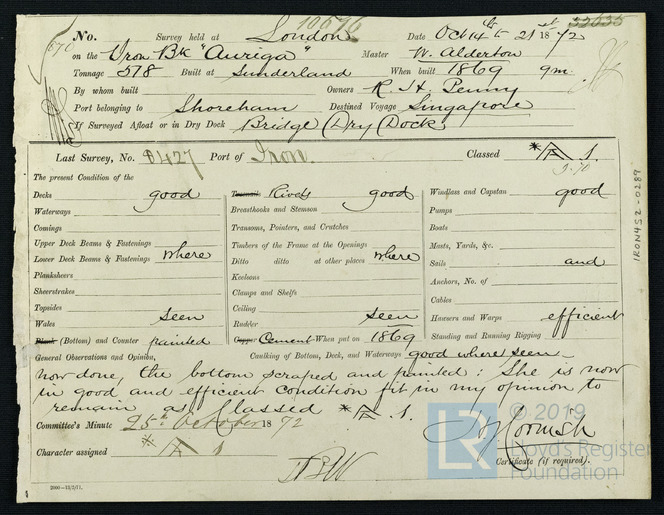 10676
33635
670
No. Survey held at London Date Octr 14th to 21st 1872
on the Iron Bk "Auriga" Master W. Alderton
Tonnage 518 Built at Sunderland When built 1869 9m.
By whom built Owners R. H. Penny
Port belonging to Shoreham Destined Voyage Singapore
If Surveyed Afloat or in Dry Dock Bridge (Dry) Dock
Last Survey, No. 8427 Port of Iron Classed A 1.
9.70
The present Condition of the
Decks good
Waterways
Comings
Upper Deck Beams & Fastenings
Lower Deck Beams & Fastenings where
Planksheers
Sheerstrakes
Topsides
Wales seen
(Bottom) and Counter painted
Treenails Rivets good
Breasthooks and Stemson
Transoms, Pointers, and Crutches
Timbers of the Frame at the Openings
Ditto ditto at other places where
Keelsons
Clamps and Shelfs
Ceiling
Rudder seen
Copper Cement When put on 1869
Windlass and Capstan good
Pumps
Boats
Masts, Yards, &c.
Sails and
Anchors, No. of
Cables
Hawsers and Warps efficient
Standing and Running Rigging
General Observations and Opinion, Caulking of Bottom, Deck, and Waterways good where seen
now done, the bottom scraped and painted: She is now
in good and efficient condition fit in my opinion to
remain as Classed *A 1.
Committee's Minute 25th October 1872
Character assigned * A 1
Cornish
Certificate (if required).
2000—12/2/71.
IRON452-0289
LR © 2019
Lloyd's Register
Foundation